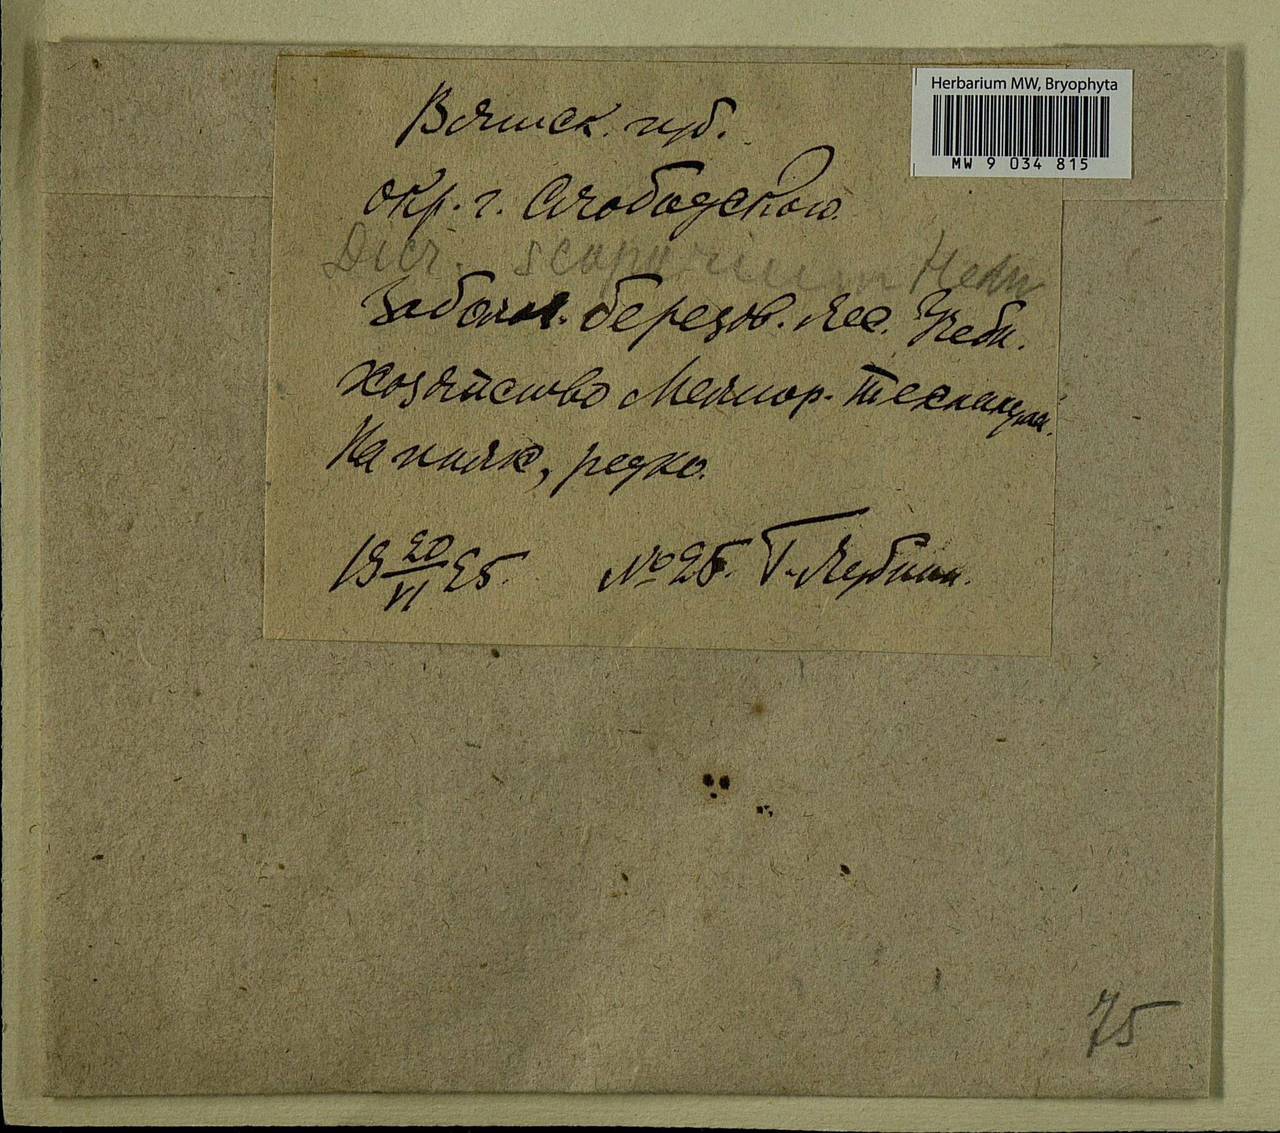 Herbarium MW, Bryophyta
MW 9 034 815
Вятск. губ.
окр. г. Слободского.
Dicr. scoparium Hedw
Забол. березов. лес. Учебн.
хозяйство Мелиор. техникума.
На пнях, редко.
19 20/VI 25. № 25. Г. Лубнин.
75